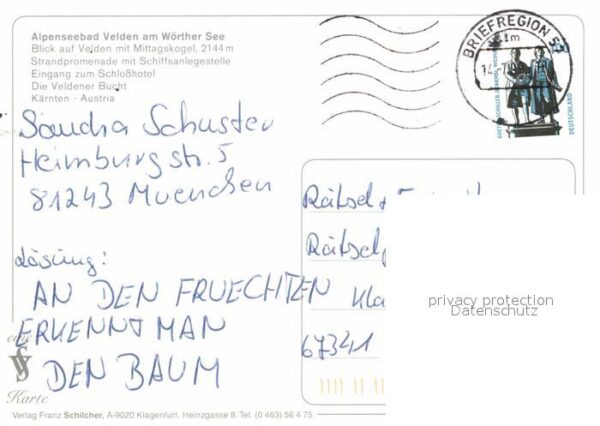 Alpenseebad Velden am Wörther See
Blick auf Velden mit Mittagskogel, 2144 m
Strandpromenade mit Schiffsanlegestelle
Eingang zum Schloßhotel
Die Veldener Bucht
Kärnten · Austria
BRIEFREGION
DEUTSCHLAND
Sandra Schuster
Heimburgstr. 5
81243 Muenchen
Lösung:
AN DEN FRUECHTEN
ERKENNT MAN
DEN BAUM
Rätsel
Kla
67341
privacy protection
Datenschutz
Karte
Verlag Franz Schilcher, A-9020 Klagenfurt, Heinzgasse 8. Tel. (0 463) 56 4 75